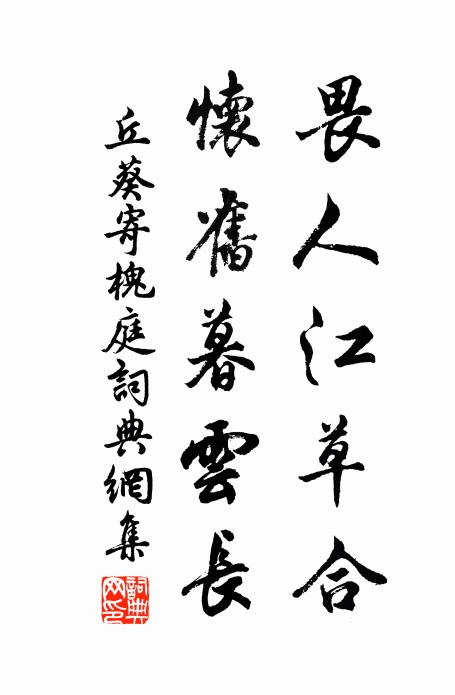 畏人江草合
懷舊暮雲長
丘葵寄槐庭詞典網集
詞典網印